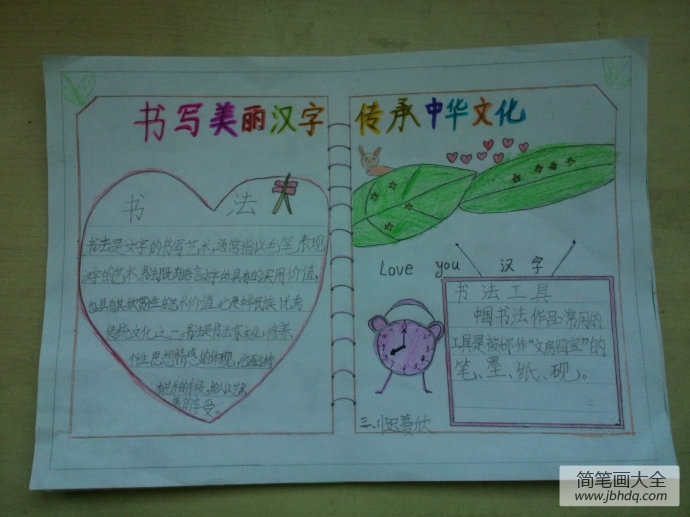 书写美丽汉字
传承中华文化
书 法
书法是文字的书写艺术,通常指以毛笔表现
汉字的艺术。书法既有语言文字所具有的实用价值,
也具有其欣赏性的艺术价值,也是中华民族优秀
传统文化之一。书法是书法家文化修养
个性思想情感的体现,
美的享受。
Love you 汉字
书法工具
帼书法作品常用的
工具是被称作“文房四宝”的
笔、墨、纸、砚。
简笔画大全
www.jbhdq.com